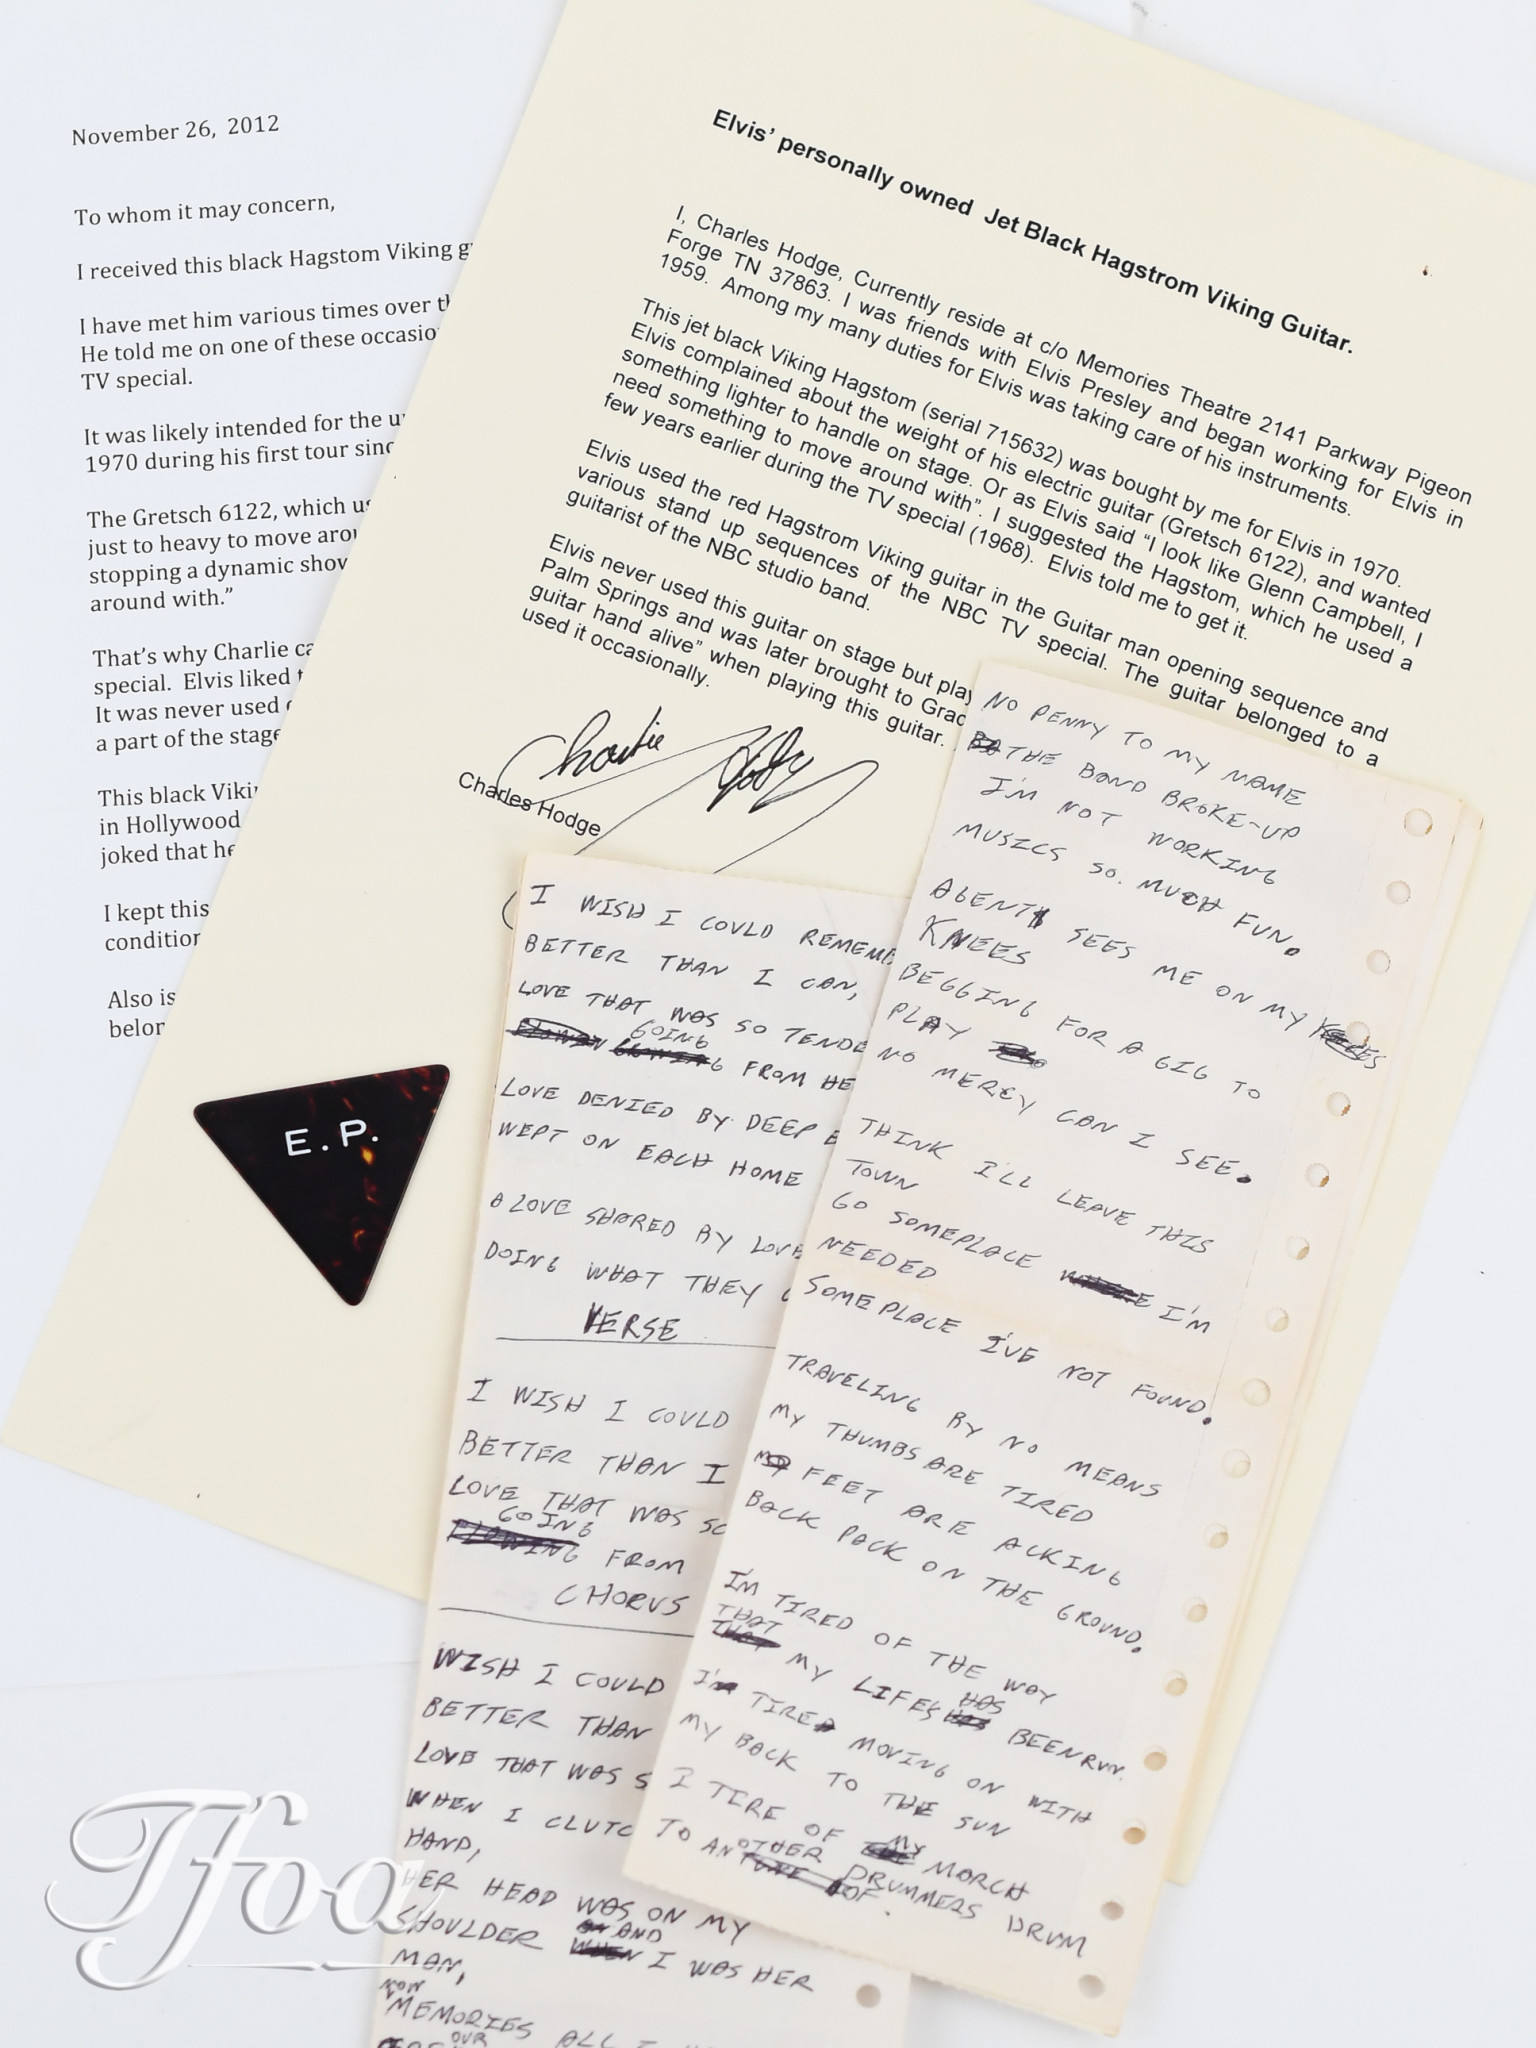 November 26, 2012
To whom it may concern,
I received this black Hagstom Viking
I have met him various times over
He told me on one of these
TV special.
It was likely intended for the
1970 during his first tour
The Gretsch 6122, which
just to heavy to move
stopping a dynamic
around with.”
That’s why Charlie
special. Elvis liked
It was never used
a part of the stage
This black
in Hollywood
joked that
I kept this
Also is
Elvis’ personally owned Jet Black Hagstrom Viking Guitar.
I, Charles Hodge, Currently reside at c/o Memories Theatre 2141 Parkway Pigeon
Forge TN 37863. I was friends with Elvis Presley and began working for Elvis in
1959. Among my many duties for Elvis was taking care of his instruments.
This jet black Viking Hagstom (serial 715632) was bought by me for Elvis in 1970.
Elvis complained about the weight of his electric guitar (Gretsch 6122), and wanted
something lighter to handle on stage. Or as Elvis said “I look like Glenn Campbell, I
need something to move around with”. I suggested the Hagstom, which he used a
few years earlier during the TV special (1968). Elvis told me to get it.
Elvis used the red Hagstrom Viking guitar in the Guitar man opening sequence and
various stand up sequences of the NBC TV special. The guitar belonged to a
guitarist of the NBC studio band.
Elvis never used this guitar on stage but
Palm Springs and was later brought to
guitar hand alive” when playing this guitar.
used it occasionally.
Charlie Hodge
Charles Hodge
E.P.
I WISH I COULD
BETTER THAN I CAN,
LOVE THAT WAS SO
GOING
FROM
LOVE DENIED BY DEEP
WEPT ON EACH HOME
A LOVE SHARED BY
DOING WHAT THEY
VERSE
I WISH I COULD
BETTER THAN I
LOVE THAT WAS
GOING
FLOWING FROM
CHORUS
WISH I COULD
BETTER THAN
LOVE THAT WAS
WHEN I
HAND,
HER HEAD WAS ON MY
AND
SHOULDER WHEN I WAS HER
MAN,
NOW
MEMORIES ALL I
OUR
NO PENNY TO MY NAME
THE BAND BROKE-UP
I'M NOT WORKING
MUSICS SO. MUCH FUN.
AGENT SEES ME ON MY
KNEES
BEGGING FOR A GIG TO
PLAY
NO MERCY CAN I SEE.
THINK I'LL LEAVE THIS
TOWN
GO SOMEPLACE WHERE I'M
NEEDED
SOMEPLACE I'VE NOT FOUND.
TRAVELING BY NO MEANS
MY THUMBS ARE TIRED
MY FEET ARE ACKING
BACK PACK ON THE GROUND.
I'M TIRED OF THE WAY
THAT
THAT MY LIFES BEEN RUN.
HAS
I'M TIRED MOVING ON WITH
MY BACK TO THE SUN
I TIRE OF MARCH
MY
TO ANOTHER DRUMMERS DRUM
OF.
Tfoa